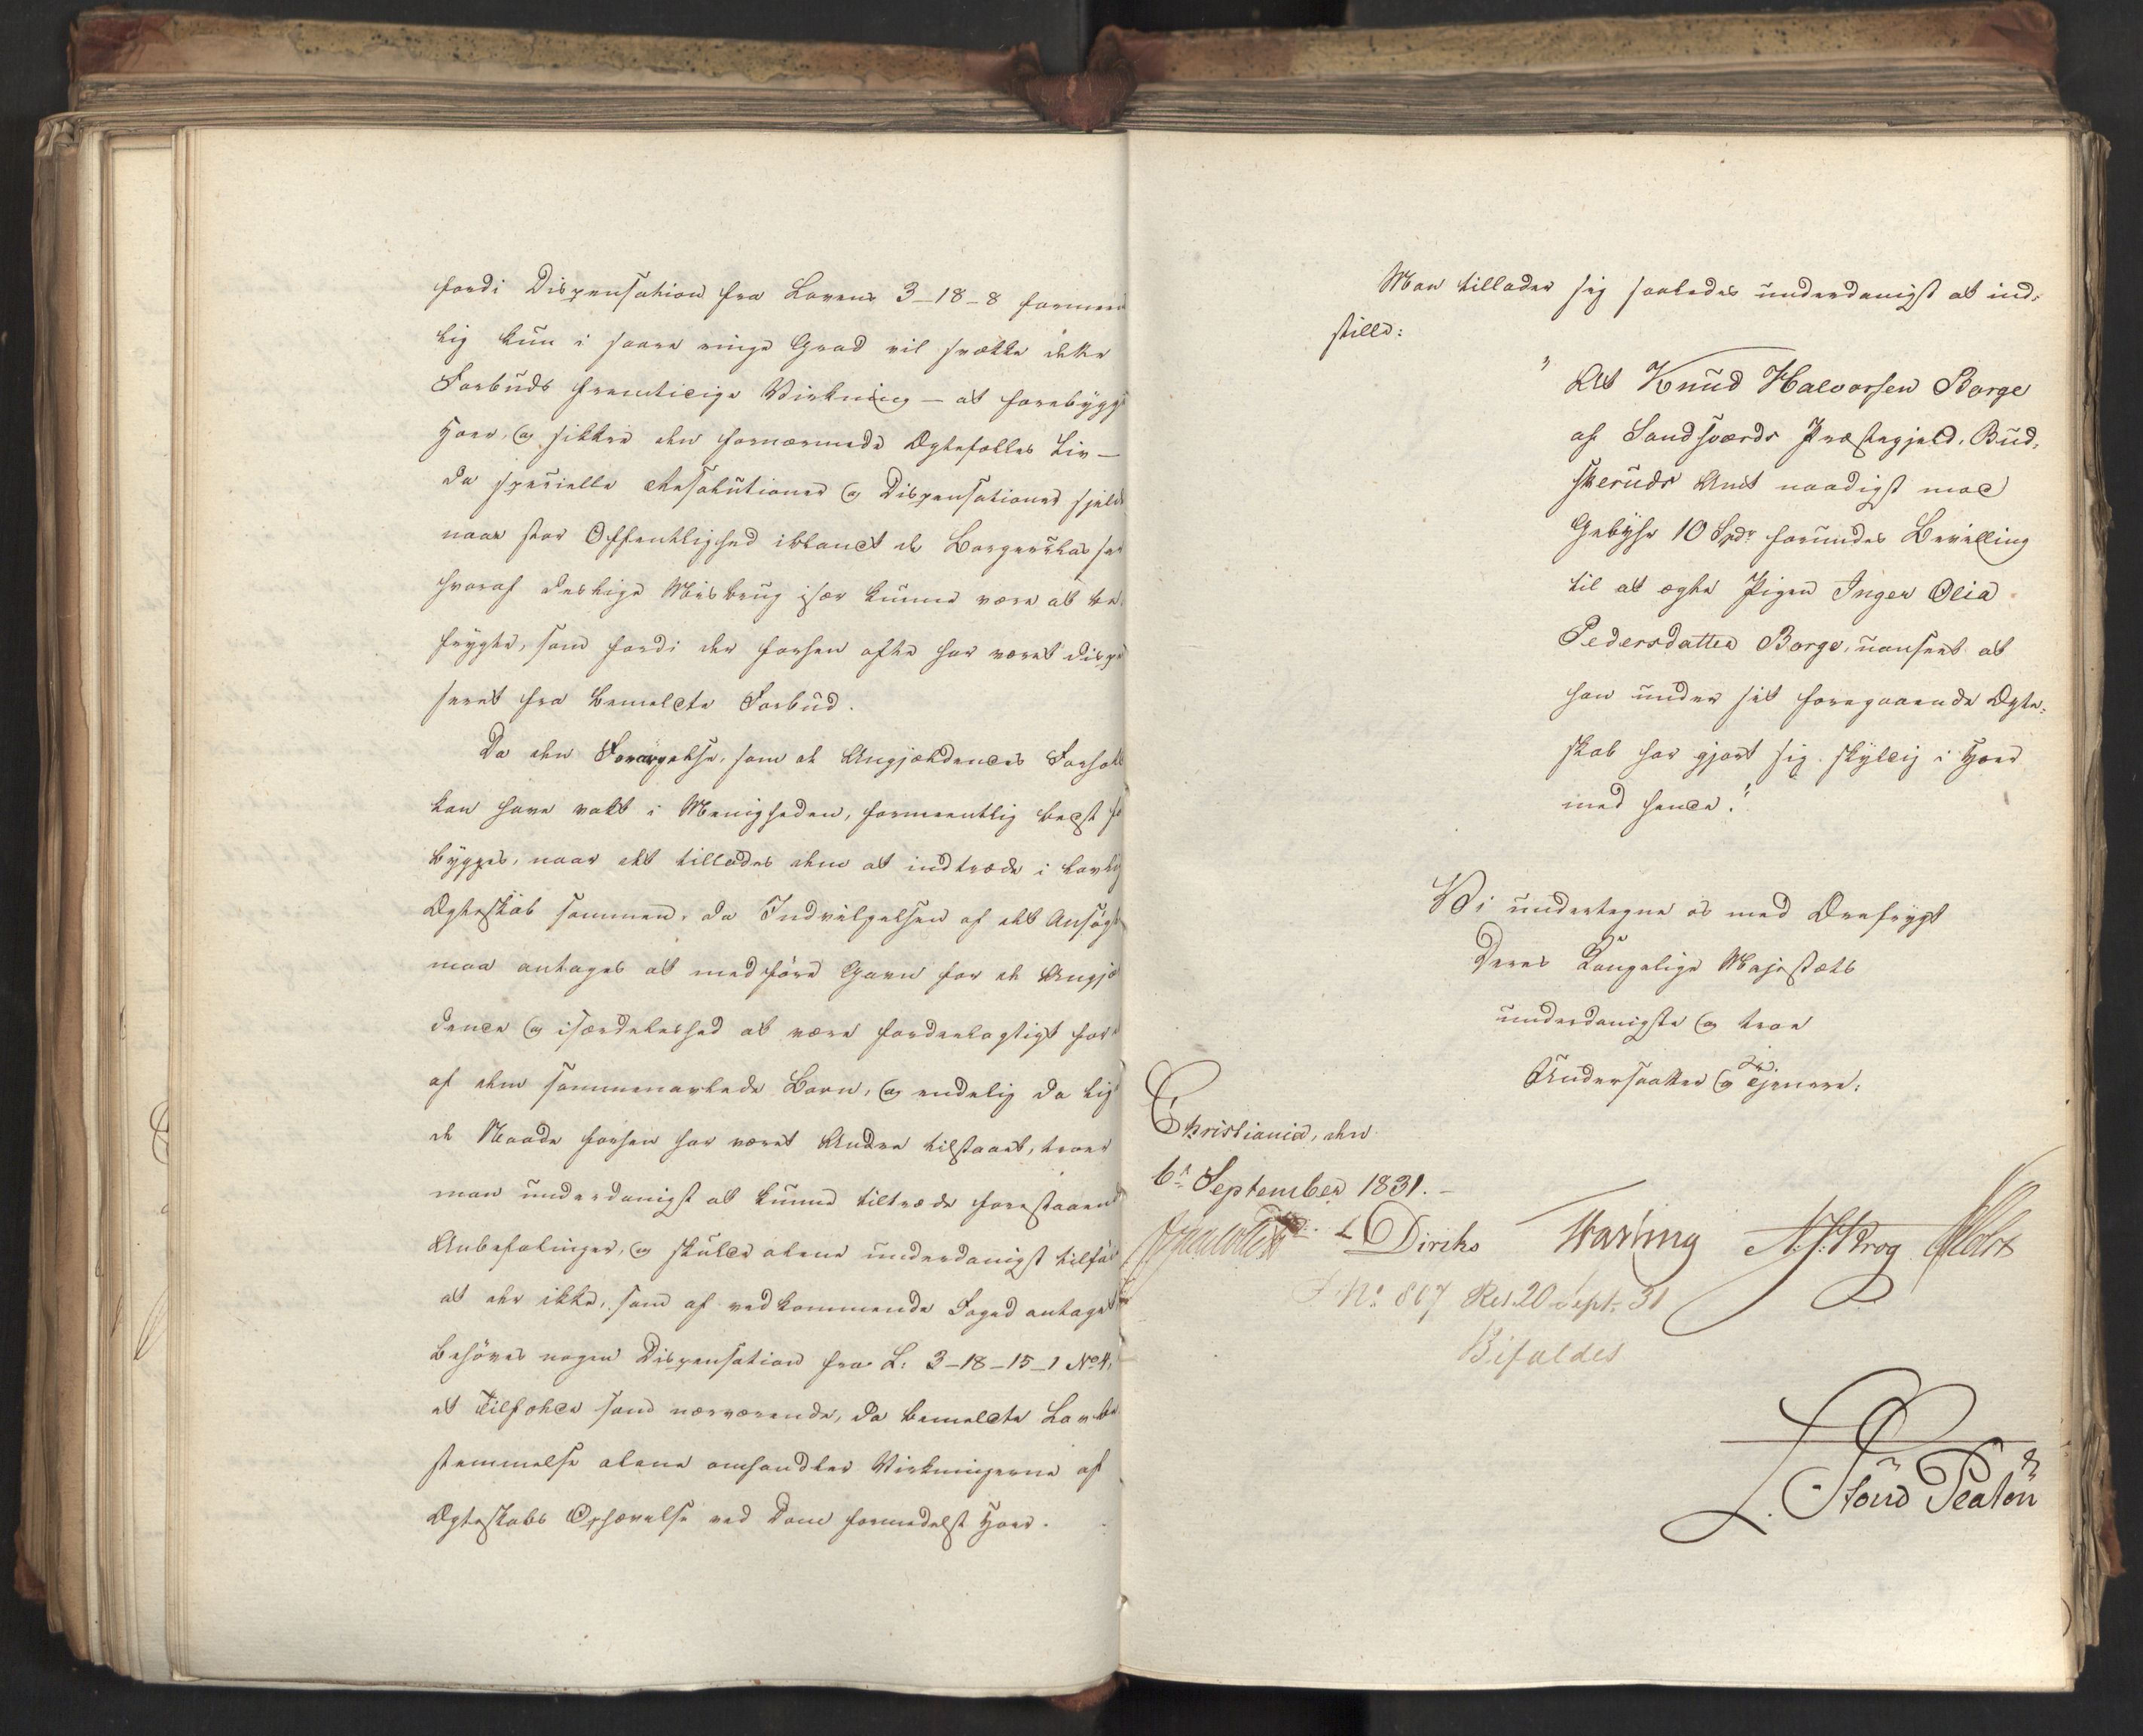 fordi Dispensation fra Lovens 3-18-8 formeent
lig kun i saare ringe Grad vil svække dette
Forbuds fremtidige Virkning – at forebygge
Hoer, og sikkre den fornærmede Ægtefælles Liv –
da specielle Resolutioner og Dispensationer sjeld
naar stor Offentlighed iblandt de Borgerklasser
hvoraf deslige Misbrug især kunne være at be,
frygte, som fordi der forhen ofte har været dispen
seret fra bemeldte Forbud.
Da den Forargelse, som de Angjældendes Forhold
kan have vakt i Menigheden, formeentlig bedst fo
bygges, naar det tillades dem at indtræde i lovlig
Ægteskab sammen, da Indvilgelsen af det Ansøgte
maa antages at medføre Gavn for de Angjæ
dende og isærdeleshed at være fordeelagtigt for
af dem sammenavlede Børn, og endelig da lig
de Naade forhen har været Andre tilstaaet, troer
man underdanigst at kunne tiltræde forestaaende
Anbefalinger, og skulde alene underdanigst tilføie
at der ikke, som af vedkommende Foged antaget,
behøves nogen Dispensation fra L: 3-18-15-1 No 4,
et Tilfælde som nærværende, da bemeldte Lovbe
stemmelse alene omhandler Virkningerne af
Ægteskabs Ophævelse ved Dom formedelst Hoer.
Man tillader sig saaledes underdanigst at ind,
stille:
"At Knud Halvorsen Borge
af Sandsværds Præstegjeld, Bud,
skeruds Amt naadigst mod
Gebyhr 10 Spdr forundes Bevilling
til at ægte Pigen Inger Olia
Pedersdatter Borge, uanseet at
han under sit foregaaende Ægte,
skab har gjort sig skyldig i Hoer
med hende."
Vi undertegne os med Ærefrygt
Deres Kongelige Majestæts
underdanigste og troe
Undersaatter og Tjenere:
Christiania, den
6te September 1831.
Diriks Fasting N. J. Krog Holst
J. No. 867 Res. 20 Sept. 31
Bifaldes